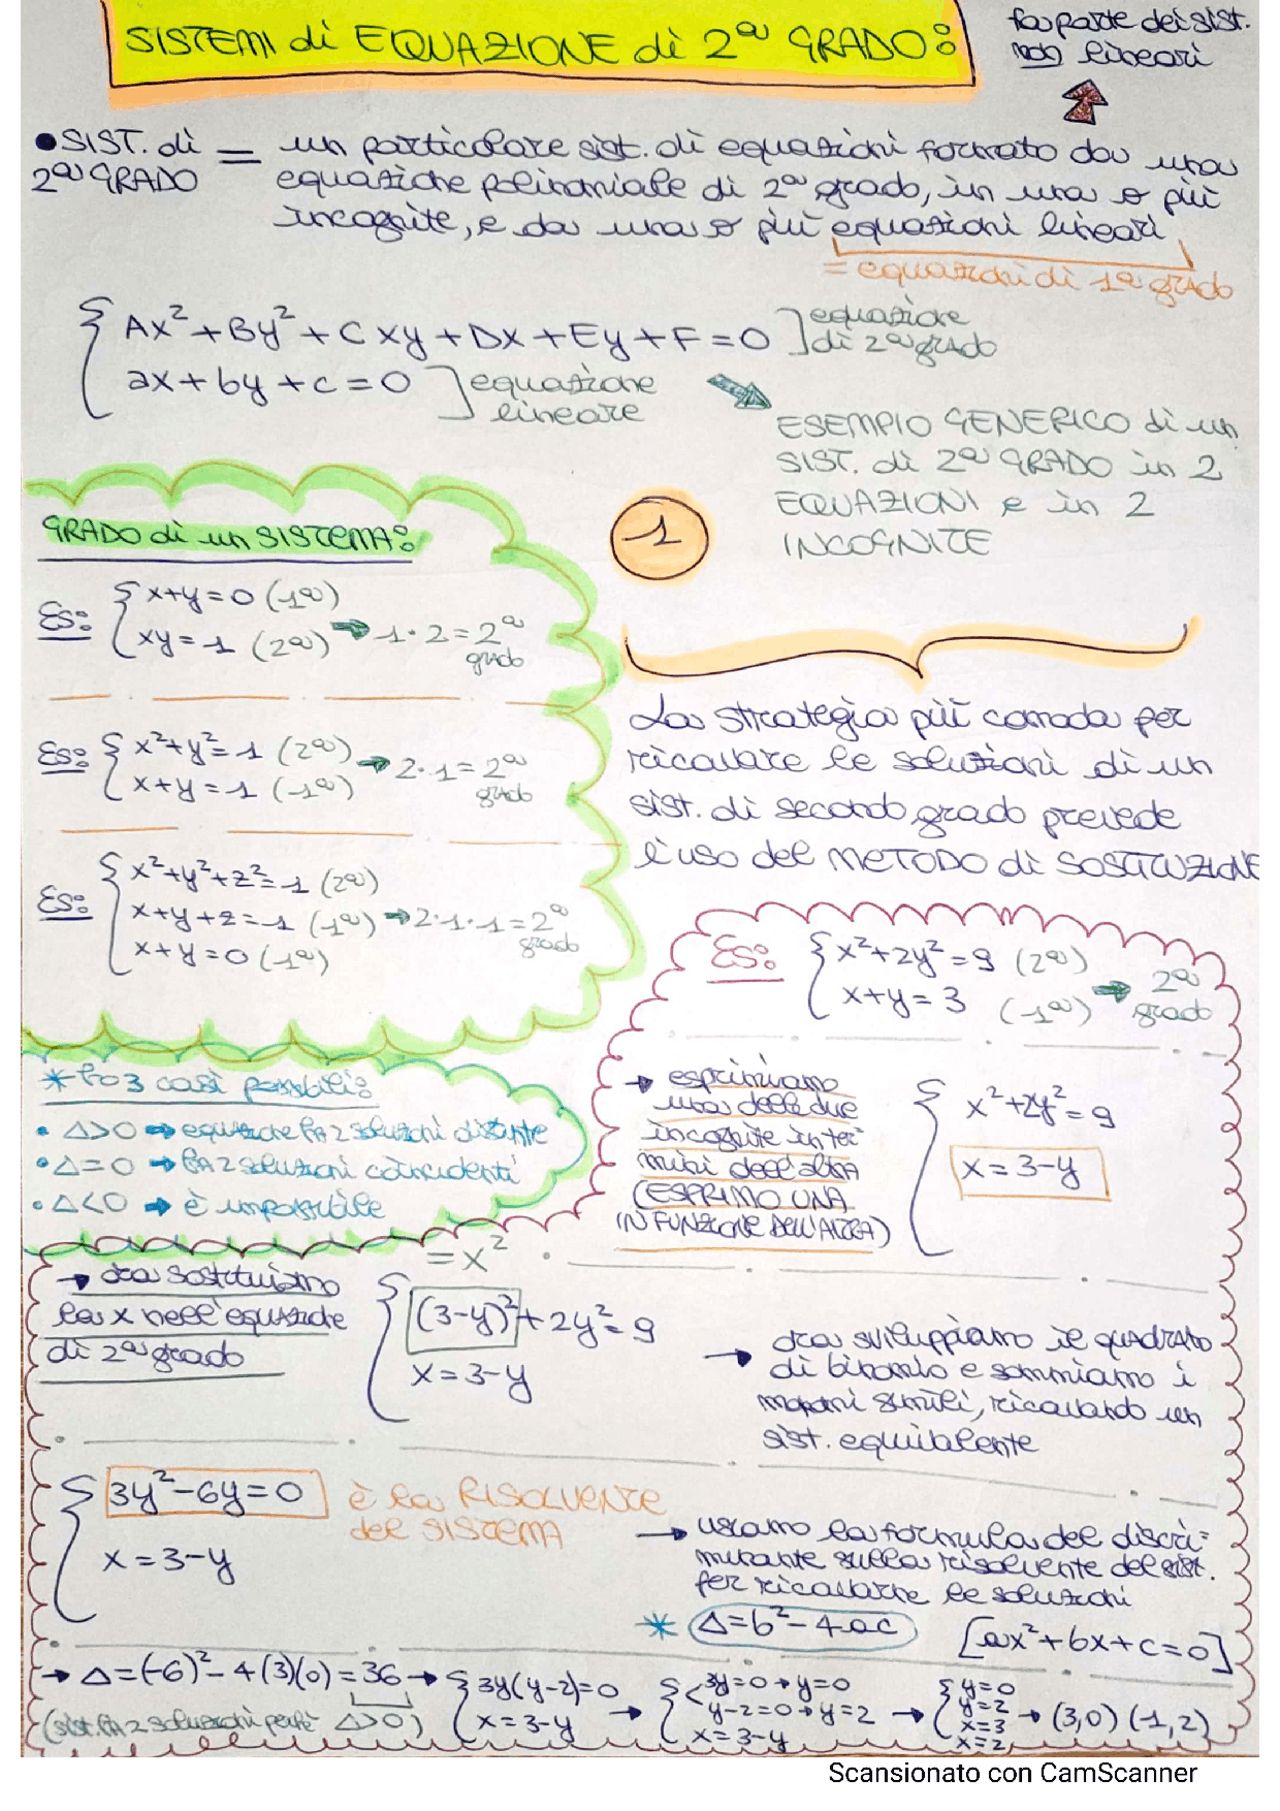 SISTEMI di EQUAZIONE di 2° GRADO:
fa parte dei sist.
non lineari
• SIST. di 2° GRADO = un particolare sist. di equazioni formato da una
equazione polinomiale di 2° grado, in una o più
incognite, e da una o più equazioni lineari
= equazioni di 1° grado
{ Ax²+By²+Cxy+Dx+Ey+F=0 ] equazione di 2° grado
ax+by+c=0 ] equazione lineare
ESEMPIO GENERICO di un
SIST. di 2° GRADO in 2
EQUAZIONI e in 2
INCOGNITE
GRADO di un SISTEMA:
Es: { x+y=0 (1°)
xy=1 (2°) → 1·2=2° grado
Es: { x²+y²=1 (2°)
x+y=1 (1°) → 2·1=2° grado
Es: { x²+y²+z²=1 (2°)
x+y+z=1 (1°) → 2·1·1=2° grado
x+y=0 (1°)
1
La strategia più comoda per
ricavare le soluzioni di un
sist. di secondo grado prevede
l'uso del METODO di SOSTITUZIONE
Es: { x²+2y²=9 (2°)
x+y=3 (1°) → 2° grado
* Ho 3 casi possibili:
• Δ>0 → equazione ha 2 soluzioni distinte
• Δ=0 → ha 2 soluzioni coincidenti
• Δ<0 → è impossibile
→ esprimiamo
una delle due
incognite in ter=
mini dell'altra
(ESPRIMO UNA
IN FUNZIONE DELL'ALTRA)
{ x²+2y²=9
x=3-y
→ ora sostituiamo
la x nell'equazione
di 2° grado
=x²
{ (3-y)²+2y²=9
x=3-y
→ ora sviluppiamo il quadrato
di binomio e sommiamo i
monomi simili, ricavando un
sist. equivalente
{ 3y²-6y=0 è la RISOLVENTE
del SISTEMA
x=3-y
→ usiamo la formula del discri=
minante sulla risolvente del sist.
per ricavare le soluzioni
* Δ=b²-4ac [ax²+bx+c=0]
→ Δ=(-6)²-4(3)(0)=36 → { 3y(y-2)=0
x=3-y
→ { 3y=0→y=0
y-2=0→y=2
x=3-y
→ { y=0
y=2
x=3
x=2
→ (3,0) (1,2)
(sist. ha 2 soluzioni perché Δ>0)
Scansionato con CamScanner